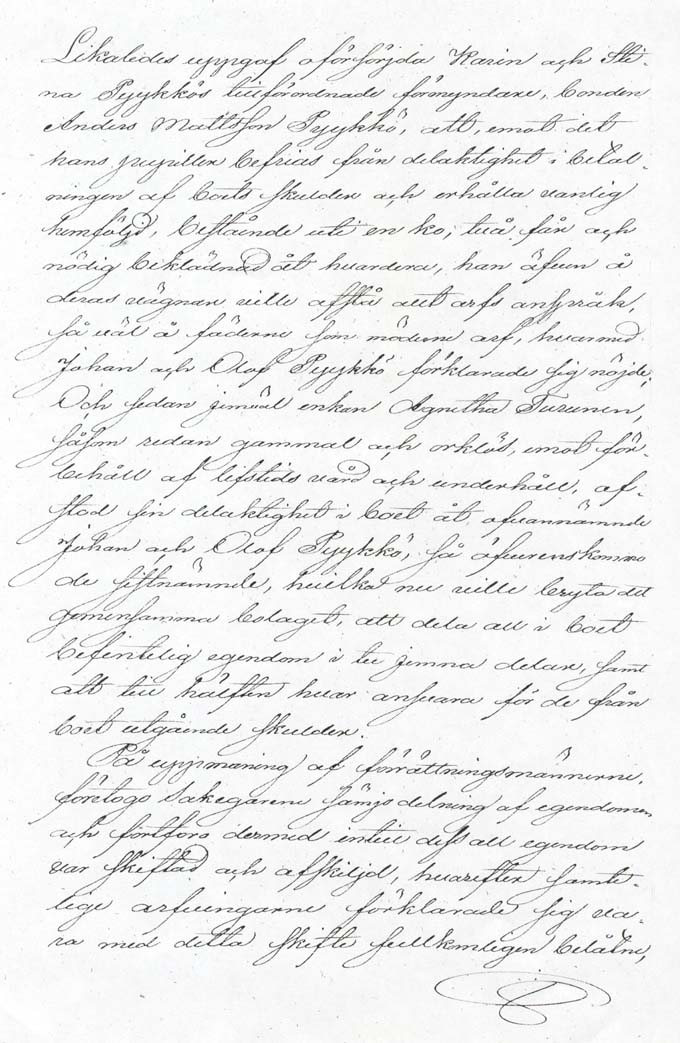 Likaledes uppgaf oförsörjda Karin och Sti-
na Pyykkös tillförordnade förmyndare, bonden
Anders Mattsson Pyykkö, att, emot det
hans pupiller befrias från delaktighet i betal-
ningen af boets skulder och erhålla vanlig
hemföljd, bestående uti en ko, två får och
nödig beklädnad åt hvardera, han äfven å
deras vägnar ville afstå allt arfs anspråk,
så väl å fäderne som möderne arf, hvarmed
Johan och Olof Pyykkö förklarade sig nöjde;
Och sedan jemväl enkan Agnetha Turunen,
såsom redan gammal och orklös, emot för-
behåll af lifstids vård och underhåll, af-
stod sin delaktighet i boet åt ofvannämnde
Johan och Olof Pyykkö, så öfverenskommo
de sistnämnde, hvilka nu ville bryta det
gemensamma bolaget, att dela all i boet
befintelig egendom i två jemna delar, samt
att till hälften hvar ansvara för de från
boet utgående skulder.
På uppmaning af förrättningsmännerne,
företogo sakegarene sämjodelning af egendomen
och fortforo dermed intill dess all egendom
var skiftad och afskiljd, hvarefter samte-
lige arfvingarne förklarade sig va-
ra med detta skifte fullkomligen belåtne,